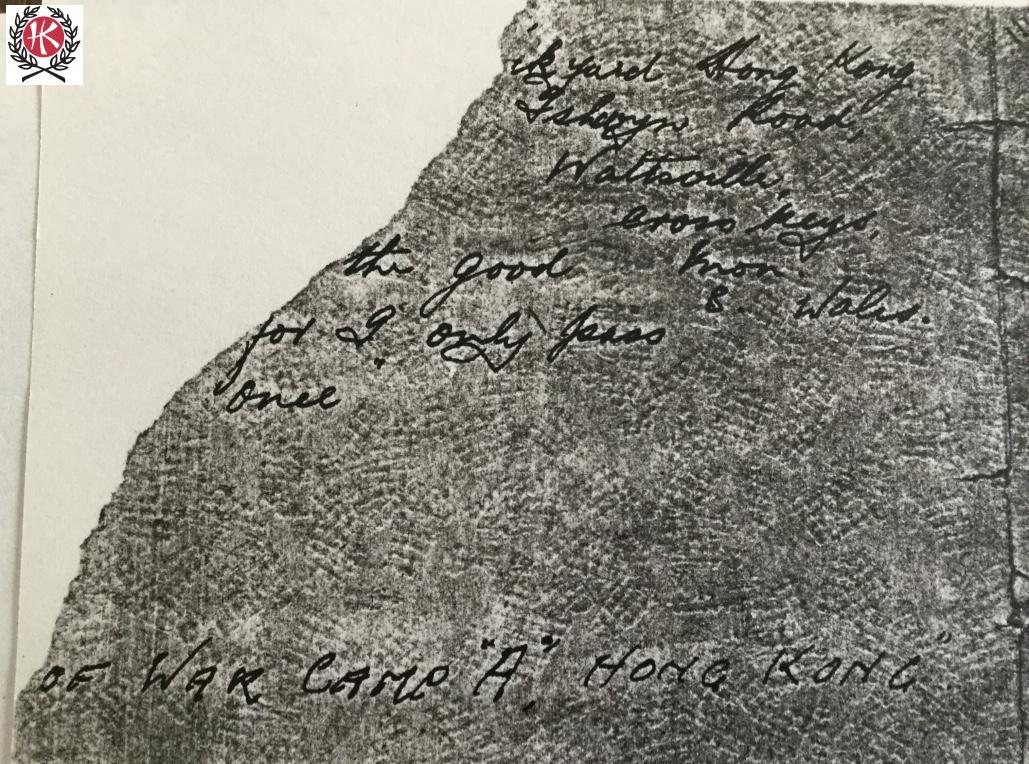 HK
ckyard Hong Kong
Islwyn Road,
Wattsville,
cross keys,
the good Mon.
S. Wales.
for I only pass
once
OF WAR CAMP "A", HONG KONG"